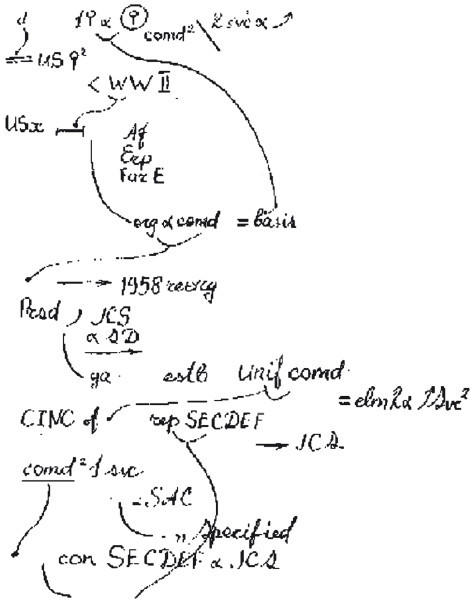 d 1♀ α ♀ comd² 2 svc α ↗
US ♀²
< WW II
USx
Af
Erp
Far E
org α comd = basis
→ 1958 reorg
Prsd, JCS
α SD
ga estb Unif comd
= elm 2α ↑ svc²
CINC of rep SECDEF
→ JCS
comd² 1 svc
- SAC
- " Specified
con SECDEF α JCS